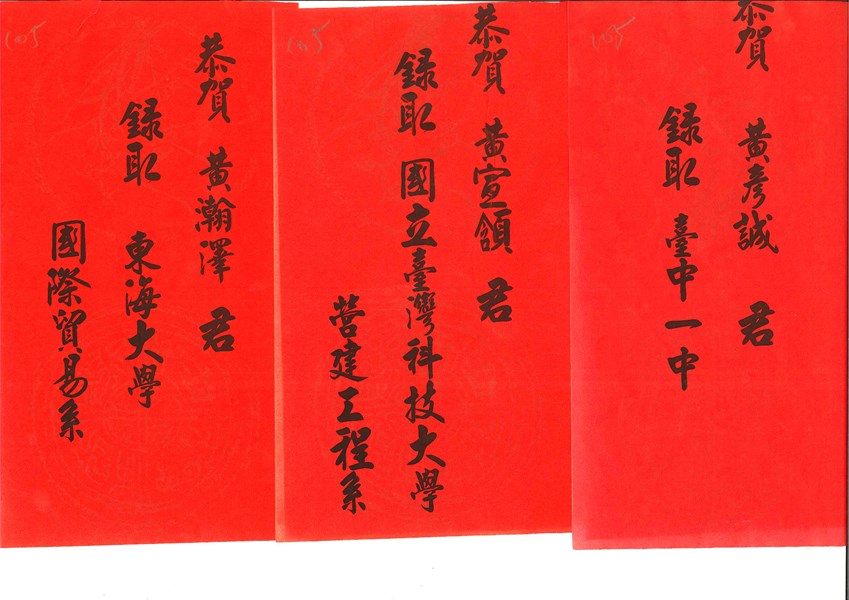 恭賀 黃彥誠 君
錄取 臺中一中
105
恭賀 黃宣領 君
錄取 國立臺灣科技大學
營建工程系
105
恭賀 黃瀚澤 君
錄取 東海大學
國際貿易系
105